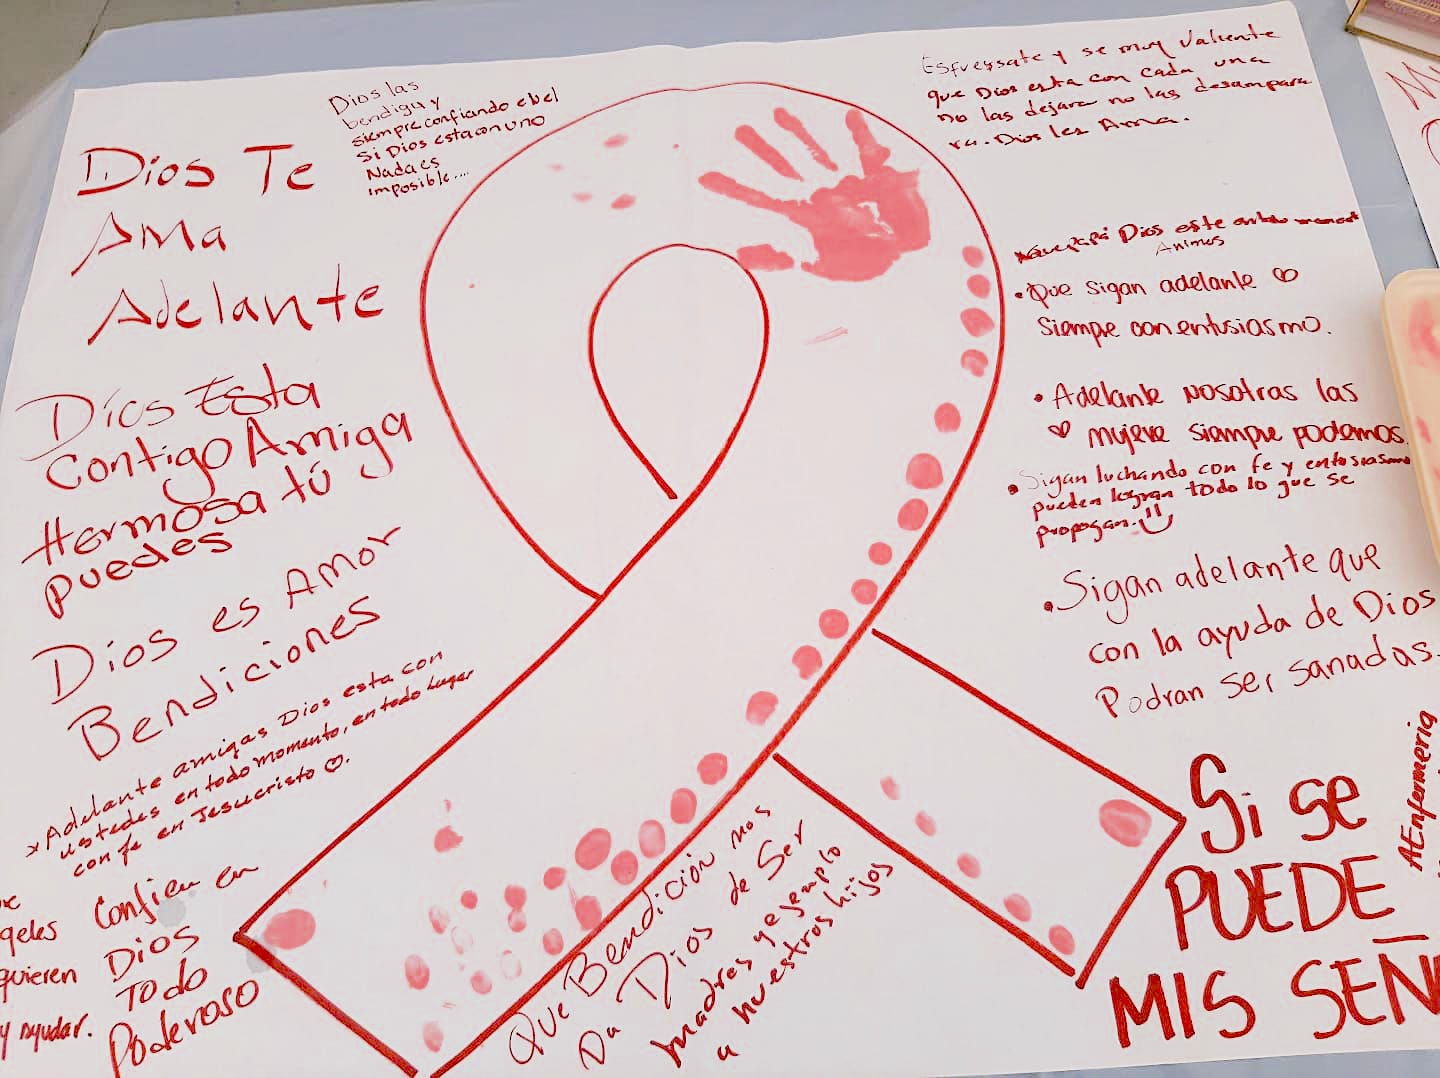 Dios las
bendiga y
siempre confiando en el
Si Dios esta con uno
Nada es
imposible....
Esfuerssate y se muy valiente
que Dios esta con cada una
no las dejara no las desampara
ra. Dios les Ama.
Dios Te
AMa
Adelante
Dios Esta
Contigo Amiga
Hermosa tú
puedes
Dios es Amor
Bendiciones
x Adelante amigas Dios esta con
ustedes en todo momento, en todo lugar
con fe en Jesucristo
Confien en
Dios
Todo
Poderoso
geles
quieren
y ayudar.
Dios este en todo
Animos
• Que sigan adelante ♡
Siempre con entusiasmo.
• Adelante nosotras las
♡ mujere siempre podemos.
• Sigan luchando con fe y entosiasmo
pueden logran todo lo que se
propogan.
• Sigan adelante que
con la ayuda de Dios
Podran ser sanadas.
Si se
PUEDE
MIS SEÑ
AEnfermeria
Que Bendición nos
Da Dios de Ser
madres y ejemplo
a nuestros hijos